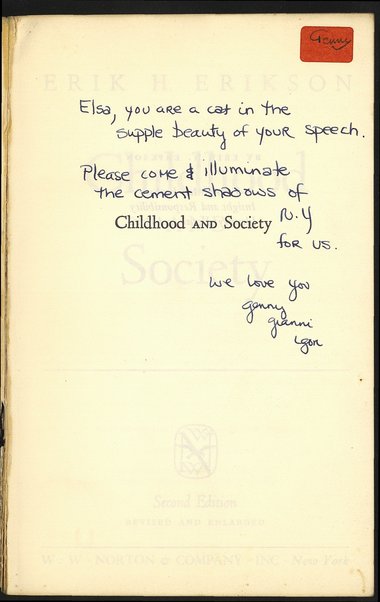 Genny
ERIK H. ERIKSON
Elsa, you are a cat in the
supple beauty of your speech.
Please come & illuminate
the cement shadows of
Childhood AND Society N.Y
for us.
Society
we love you
genny
gianni
igor
Second Edition
REVISED AND ENLARGED
W · W · NORTON & COMPANY · INC · New York